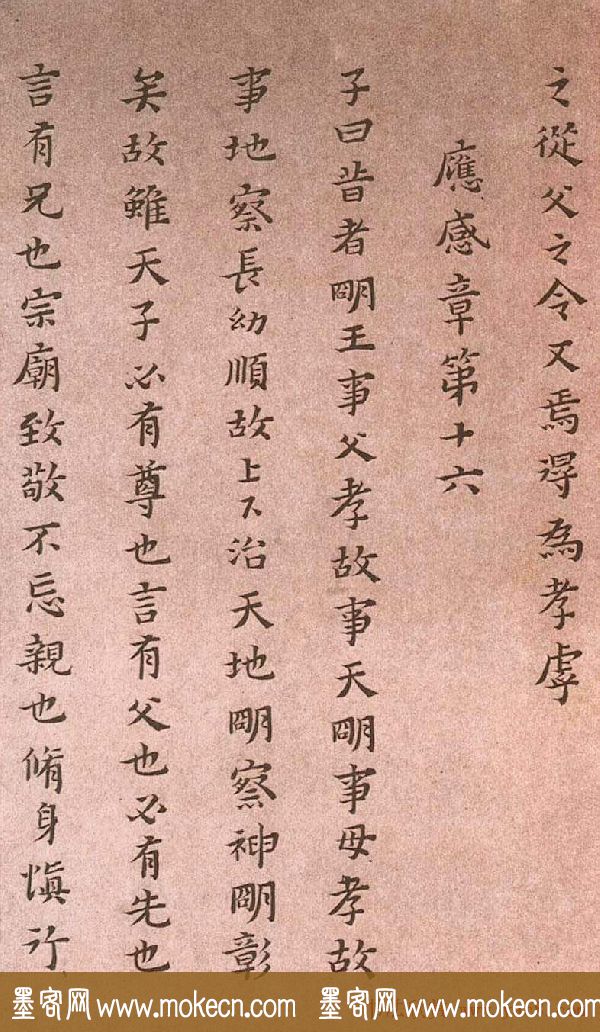 之從父之令又焉得為孝虖
應感章第十六
子曰昔者朙王事父孝故事天朙事母孝故
事地察長幼順故上下治天地朙察神朙彰
矣故雖天子必有尊也言有父也必有先也
言有兄也宗廟致敬不忘親也脩身慎行
墨客网 www.mokecn.com 墨客网 www.mokecn.com